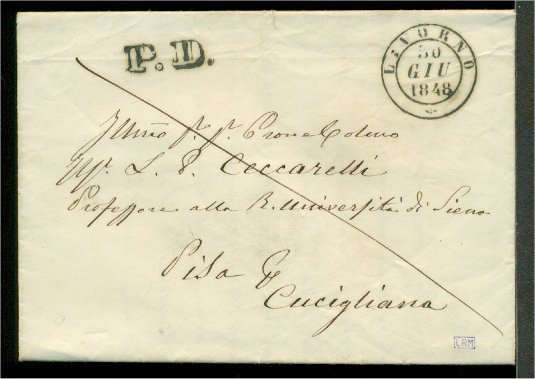 P. D.
LIVORNO
30
GIU
1848
Illmo Sr. Sr. Prone Colmo
L. P. Ceccarelli
Professore alla R. Università di Siena
Pisa
Cucigliana
LRM